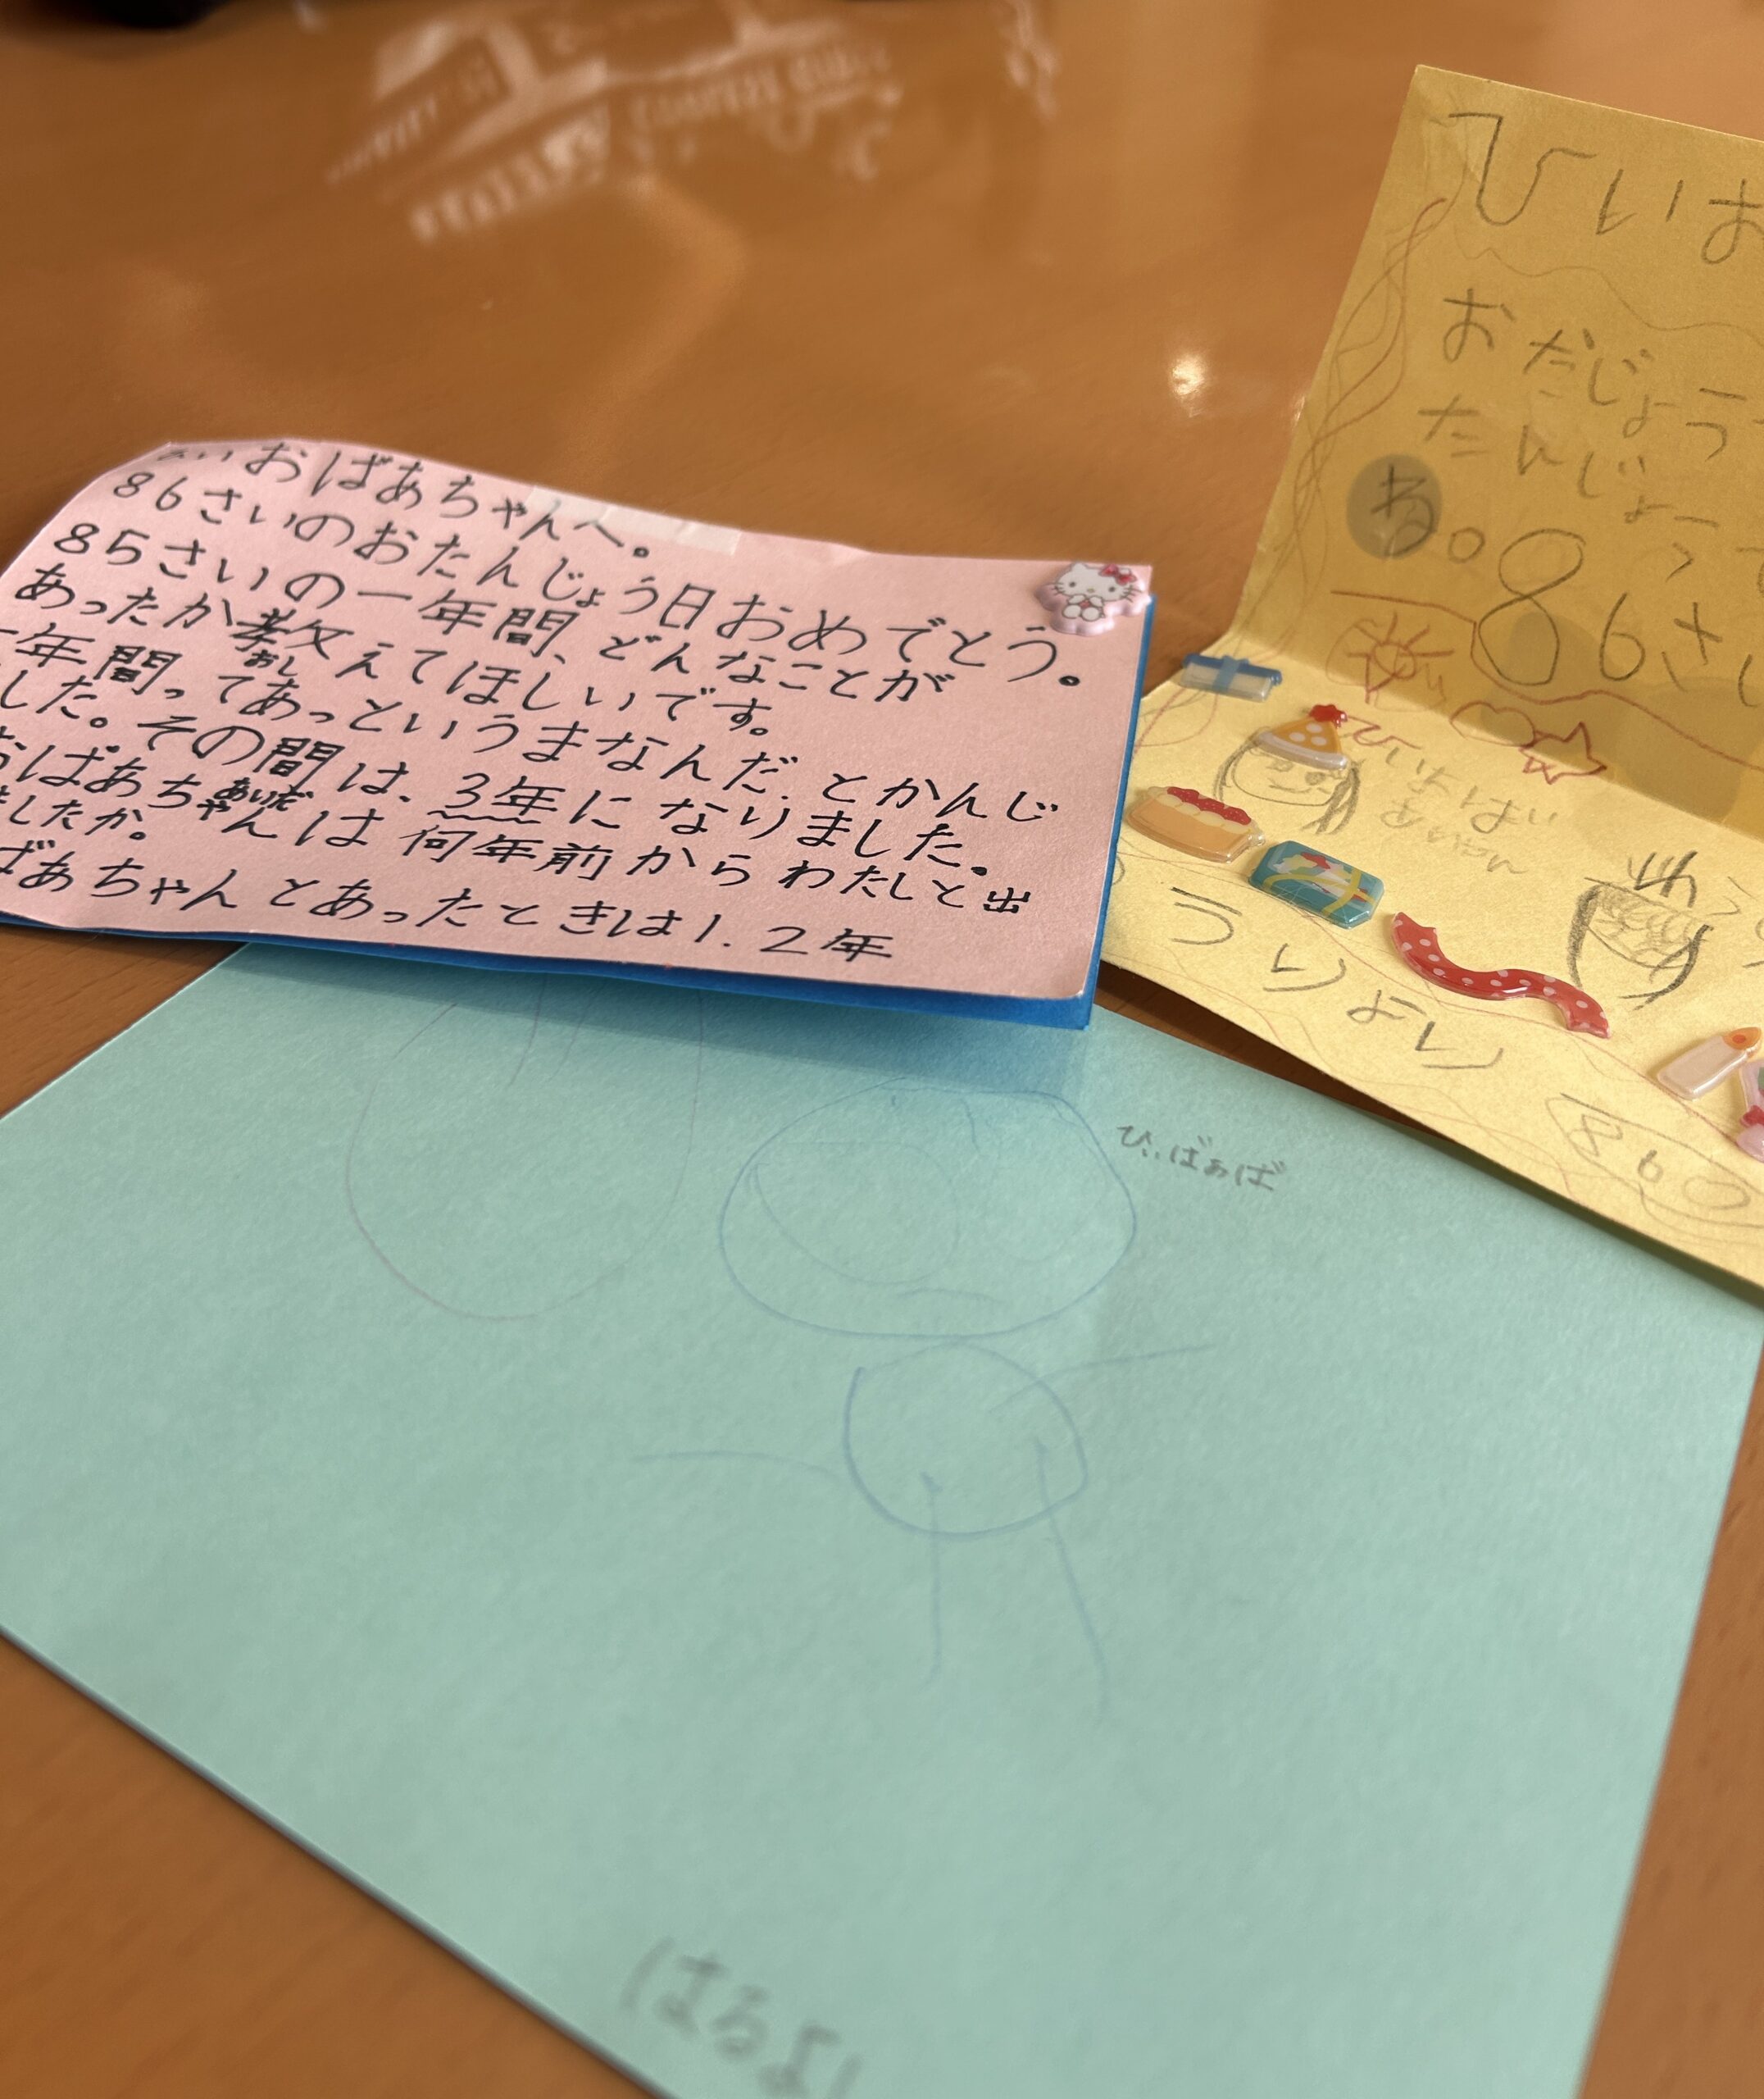 おばあちゃんへ。
86さいのおたんじょう日おめでとう。
85さいの一年間、どんなことが
あったか教えてほしいです。
おし
年間ってあっというまなんだ、とかんじ
した。その間は、3年になりました。
あいだ
おばあちゃんは何年前からわたしと出
ましたか。
ばあちゃんとあったときは1.2年
ひいお
おだじょう
たんじょう
ね。86さい
ひい
うりより
860
ひいばぁば
はるより